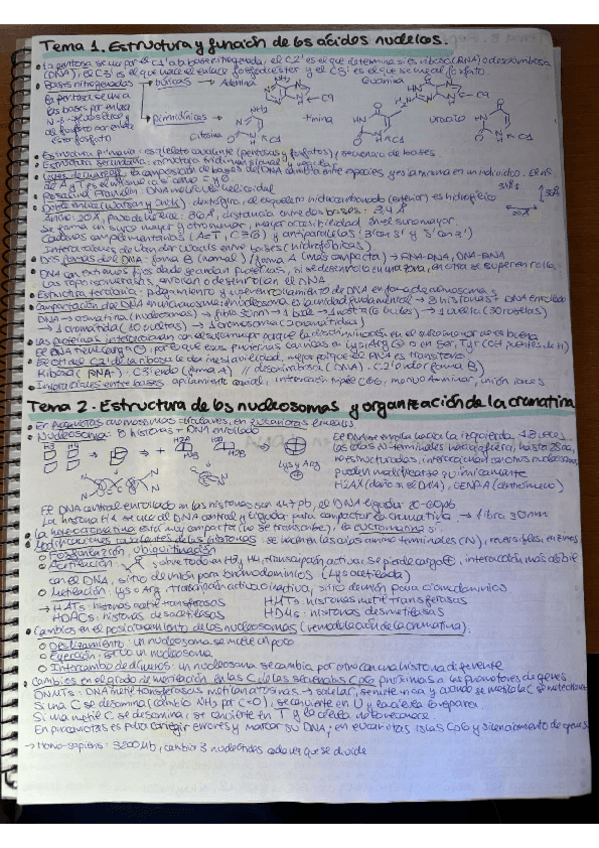 Tema 1. Estructura y función de los ácidos nucleicos.
• La pentosa se une por el C1' a la base nitrogenada, el C2' es el que determina si es ribosa (RNA) o desoxirribosa
(DNA), el C3' es el que hace el enlace fosfodiéster y el C5' es el que se une al fosfato.
• Bases nitrogenadas → púricas → Adenina Guanina
La pentosa se une a
las bases por enlace
N-β-glucosídico y
al fosfato por enlace
éster fosfato
→ pirimidínicas → Citosina Timina Uracilo
• Estructura primaria: esqueleto covalente (pentosas y fosfatos) / secuencia de bases
• Estructura secundaria: estructura tridimensional
la composición de bases del DNA cambia entre especies, y es la misma en un individuo. El nº
de A y T es el mismo, sí como C y G
• Rosalind Franklin: DNA molécula helicoidal
• Doble hélice (Watson y Crick): dextrógiro, el esqueleto hidrocarbonado (exterior) es hidrofílico
20Å, paso de hélice: 36Å, distancia entre dos bases: 3,4 Å
Se forma un surco mayor y otro menor, mayor accesibilidad en el surco mayor.
Cadenas complementarias (A=T, C≡G) y antiparalelas (3' con 5' y 5' con 3')
Interacciones de Van der Waals entre bases (hidrofóbicas)
• Dos formas del DNA: forma B (normal) / forma A (más compacta) → RNA-RNA, DNA-RNA
• DNA con extremos fijos
Las topoisomerasas enrollan o desenrollan el DNA
• Estructura terciaria: plegamiento y superenrollamiento de DNA en forma de cromosomas
• Compactación del DNA en cromosoma: nucleosoma es la unidad fundamental → 8 histonas + DNA enrollado
DNA → cromatina (nucleosomas) → fibra 30nm → 1 bucle → 1 roseta (6 bucles) → 1 ovillo (30 rosetas)
→ 1 cromátida (10 ovillos) → 1 cromosoma (2 cromátidas)
• Las proteínas interaccionan con el surco mayor porque la discriminación en el surco menor no es buena
• El OH del C2' de la ribosa le da inestabilidad, mejor porque el RNA es transitorio
Ribosa (RNA): C3' endo (forma A) // desoxirribosa (DNA): C2' endo (forma B)
• Interacciones entre bases: apilamiento
Tema 2. Estructura de los nucleosomas y organización de la cromatina
• En procariotas cromosomas circulares, en eucariotas lineales
• Nucleosoma: 8 histonas + DNA enrollado
El DNA se enrolla hacia la izquierda
las colas N-terminales hacia fuera, hasta 25aa,
no estructuradas, interaccionan con otros nucleosomas,
pueden modificarse químicamente
H2AX (daño en el DNA), CENPA (centrómero)
Lys y Arg
El DNA central enrollado en las histonas son 147pb, el DNA ligador 20-60pb
La histona H1 se une al DNA central y ligador para compactar la cromatina → fibra 30nm
• La heterocromatina está muy compacta (no se transcribe), la eucromatina sí
• Modificaciones covalentes de las histonas: se hacen en las colas amino terminales (N), reversibles, enzimas
o Fosforilación, ubiquitinación
o Acetilación: sobre todo en H3 y H4, transcripción activa, se pierde carga ⊕, interacción más débil
con el DNA, sitio de unión para bromodominios (Lys acetilada)
o Metilación: Lys o Arg, transcripción activa o inactiva, sitio de unión para cromodominios
→ HATs: histonas acetil transferasas HMTs: histonas metil transferasas
HDACs: histonas desacetilasas HDMs: histonas desmetilasas
• Cambios en el posicionamiento de los nucleosomas (remodelación de la cromatina).
o Deslizamiento: un nucleosoma se mueve un poco
o Eyección: se va un nucleosoma
o Intercambio de dímeros: un nucleosoma se cambia por otro con una histona diferente
• Cambios en el grado de metilación en las C de las secuencias CpG próximas a los promotores de genes.
DNMTs: DNA metil transferasas
Si una C se desamina (cambio NH2 por C=O), se convierte en U y la célula lo repara.
Si una metil C se desamina, se convierte en T y la célula no lo reconoce.
En procariotas es para corregir errores y marcar su DNA, en eucariotas islas CpG y silenciamiento de genes
→ Homo-sapiens: 3200Mb, cambia 3 nucleótidos cada vez que se divide